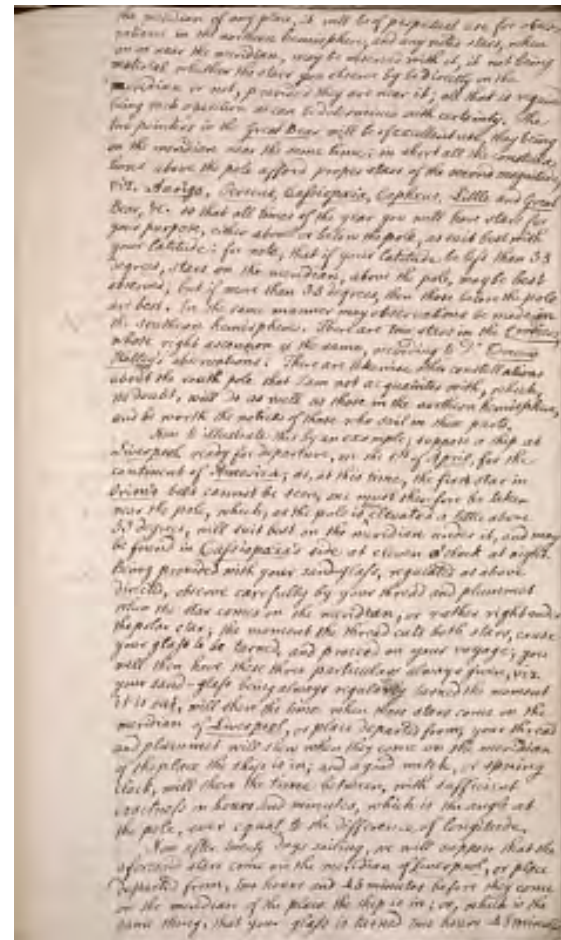 the meridian of any place, it will be of perpetual use for obser-
vations in the northern hemisphere, and any noted stars, when
on or near the meridian, may be observed with it, it not being
material whether the stars you observe by be directly on the
meridian or not, provided they are near it; all that is required
being such position as can be determined with certainty. The
two pointers in the Great Bear will be of excellent use, they being
on the meridian near the same time; in short all the constella-
tions above the pole afford proper stars of the second magnitude,
viz. Auriga, Perseus, Cassiopaia, Cepheus, Little and Great
Bear, &c. so that all times of the year you will have stars for
your purpose, either above or below the pole, as suit best with
your latitude: for note, that if your latitude be less than 33
degrees, stars on the meridian, above the pole, may be best
observed; but if more than 33 degrees, then those below the pole
are best. In the same manner may observations be made in
the southern hemisphere. There are two stars in the
whose right ascension is the same, according to Dr
Halley's observations: There are likewise other constellations
about the south pole that I am not acquainted with, which,
no doubt, will do as well as those in the northern hemisphere,
and be worth the notice of those who sail in those parts.
Now to illustrate this by an example; suppose a ship at
Liverpool ready for departure, on the of April, for the
continent of America; as, at this time, the first star in
Orion's belt cannot be seen, one must therefore be taken
near the pole, which, as the pole is elevated a little above
53 degrees, will suit best on the meridian under it, and may
be found in Cassiopaia's side at eleven o'clock at night.
Being provided with your sand-glass, regulated as above
directed, observe carefully by your thread and plummet
when the star comes on the meridian, or rather right under
the polar star; the moment the thread cuts both stars, cause
your glass to be turned, and proceed on your voyage; you
will then have these three particulars always given, viz.
your sand-glass being always regularly turned the moment
it is out, will shew the time when those stars come on the
meridian of Liverpool, or place departed from; your thread
and plummet will shew when they come on the meridian
of the place the ship is in; and a good watch, or spring
clock, will shew the time between, with sufficient
exactness in hours and minutes, which is the angle at
the pole, ever equal to the difference of longitude.
Now after twenty days sailing, we will suppose that the
aforesaid stars come on the meridian of Liverpool, or place
departed from, two hours and 45 minutes before they come
on the meridian of the place the ship is in; or, which is the
same thing, that your glass is turned two hours 45 minutes